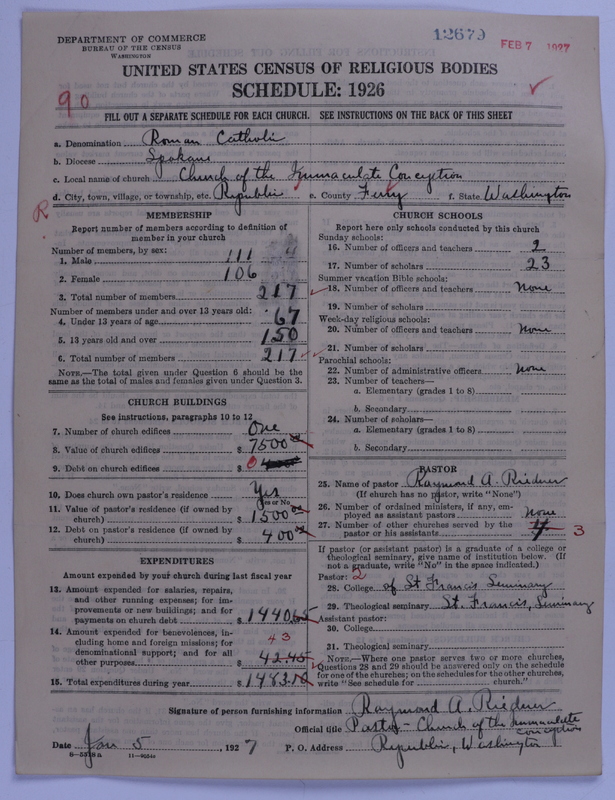 DEPARTMENT OF COMMERCE
BUREAU OF THE CENSUS
WASHINGTON
12679
FEB 7 1927
UNITED STATES CENSUS OF RELIGIOUS BODIES
SCHEDULE: 1926
90
FILL OUT A SEPARATE SCHEDULE FOR EACH CHURCH. SEE INSTRUCTIONS ON THE BACK OF THIS SHEET
a. Denomination Roman Catholic
b. Diocese Spokane
c. Local name of church Church of the Immaculate Conception
d. City, town, village, or township, etc. Republic e. County Ferry f. State Washington
R
MEMBERSHIP
Report number of members according to definition of
member in your church
Number of members, by sex:
1. Male 111
2. Female 106
3. Total number of members 217
Number of members under and over 13 years old:
4. Under 13 years of age 67
5. 13 years old and over 150
6. Total number of members 217
NOTE.—The total given under Question 6 should be
same as the total of males and females given under Question 3.
CHURCH BUILDINGS
See instructions, paragraphs 10 to 12
7. Number of church edifices One
8. Value of church edifices $ 7500 00
9. Debt on church edifices $ 0
10. Does church own pastor's residence Yes
Yes or No
11. Value of pastor's residence (if owned by
church) $ 1500 00
12. Debt on pastor's residence (if owned by
church) $ 400 00
EXPENDITURES
Amount expended by your church during last fiscal year
13. Amount expended for salaries, repairs,
and other running expenses; for im-
provements or new buildings; and for
payments on church debt $ 1440.65
14. Amount expended for benevolences, in-
cluding home and foreign missions; for
denominational support; and for all
other purposes $ 42.45
43
15. Total expenditures during year $ 1483.10
CHURCH SCHOOLS
Report here only schools conducted by this church
Sunday schools:
16. Number of officers and teachers 2
17. Number of scholars 23
Summer vacation Bible schools:
18. Number of officers and teachers None
19. Number of scholars
Week-day religious schools:
20. Number of officers and teachers None
21. Number of scholars
Parochial schools:
22. Number of administrative officers None
23. Number of teachers—
a. Elementary (grades 1 to 8)
b. Secondary
24. Number of scholars—
a. Elementary (grades 1 to 8)
b. Secondary
PASTOR
25. Name of pastor Raymond A. Riedner
(If church has no pastor, write "None")
26. Number of ordained ministers, if any, em-
ployed as assistant pastors None
27. Number of other churches served by the
pastor or his assistants 4 3
If pastor (or assistant pastor) is a graduate of a college or
theological seminary, give name of institution below. (If
not a graduate, write "No" in the space indicated.)
Pastor: 2
28. College of St Francis Seminary
29. Theological seminary St. Francis, Seminary
Assistant pastor:
30. College
31. Theological seminary
NOTE.—Where one pastor serves two or more churches,
Questions 28 and 29 should be answered only on the schedule
for one of the churches; on the schedules for the other churches,
write "See schedule for church."
Signature of person furnishing information Raymond A. Riedner
Official title Pastor - Church of the Immaculate Conception
Date Jan 5, 1927 P. O. Address Republic, Washington